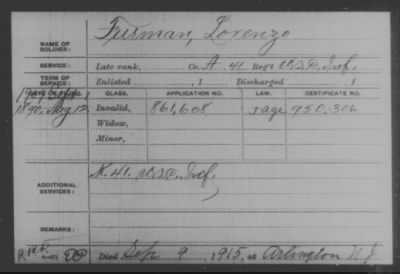 NAME OF SOLDIER: Furman, Lorenzo
SERVICE: Late rank, Co. A, 41 Reg't U.S.C. Inf.
TERM OF SERVICE: Enlisted , 1 Discharged , 1
DATE OF FILING. CLASS. APPLICATION NO. LAW. CERTIFICATE NO.
1890, Aug 12 Invalid, 861,608 950.306
Widow,
Minor,
ADDITIONAL SERVICES: K. 41. U.S.C. Inf.
REMARKS:
Died Sep 9, 1915, at Arlington N.J.